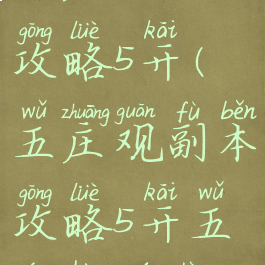 gōng lüè kāi
攻略5开(
wǔ zhuāng guān fù běn
五庄观副本
gōng lüè kāi wǔ
攻略5开五